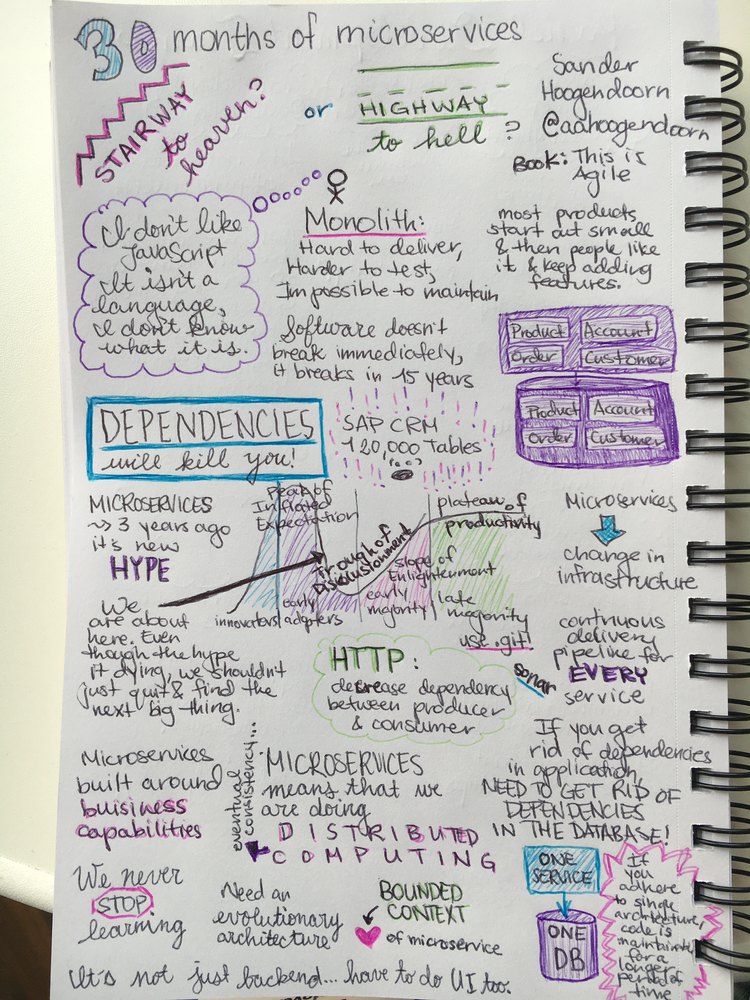 30 months of microservices
STAIRWAY
to
heaven?
or
HIGHWAY
to hell?
Sander
Hoogendoorn
@aahoogendoorn
BOOK: This is
Agile
I don't like
JavaScript
It isn't a
language,
I don't know
what it is.
Monolith:
Hard to deliver,
Harder to test,
Impossible to maintain
Software doesn't
break immediately,
it breaks in 15 years
most products
start out small
& then people like
it & keep adding
features.
Product Account
Order Customer
Product Account
Order Customer
DEPENDENCIES
will kill you!
SAP CRM
120,000 tables
MICROSERVICES
~> 3 years ago
it's new
HYPE
We
are about
here. Even
though the hype
it dying, we shouldn't
just quit & find the
next big thing.
peak of
Inflated
Expectation
Trough of
Disiolustonment
slope of
Enlightenment
plateau of
productivity
innovators
early
adopters
early
majority
late
magority
use .git
Microservices
change in
infrastructure
continuous
delivery
pipeline for
EVERY
service
sonar
HTTP:
decrease dependency
between producer
& consumer
Microservices
built around
buisiness
capabilities
eventual
consistency...
MICROSERVICES
means that we
are doing
DISTRIBUTED
COMPUTING
If you get
rid of dependencies
in application,
NEED TO GET RID OF
DEPENDENCIES
IN THE DATABASE!
We never
STOP
learning
Need an
evolutionary
architecture
BOUNDED
CONTEXT
of microservice
ONE
SERVICE
ONE
DB
If
you
adhere
to single
architecture,
code is
for a
longer
period of
time
It's not just backend... have to do UI too.